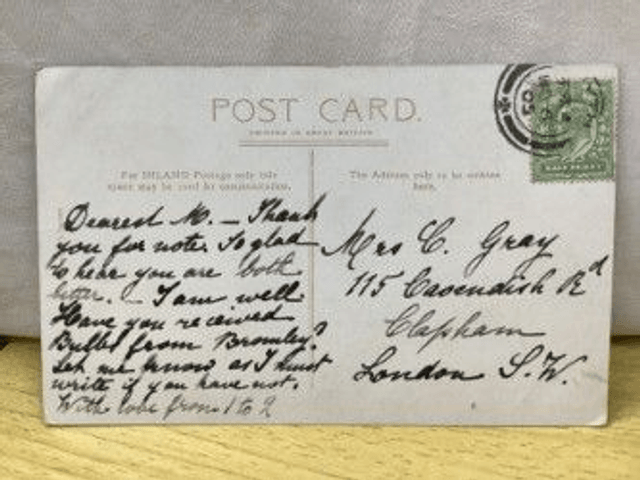 POST CARD.
PRINTED IN GREAT BRITAIN
For INLAND Postage only this
space may be used for communication.
The Address only to be written
here.
Dearest M. — Thank
you for note. So glad
to hear you are both
better. — I am well.
Have you received
Bulbs from Bromley?
Let me know as I must
write if you have not.
With love from 1 to 2
Mrs C. Gray
115 Cavendish Rd
Clapham
London S.W.
HALFPENNY